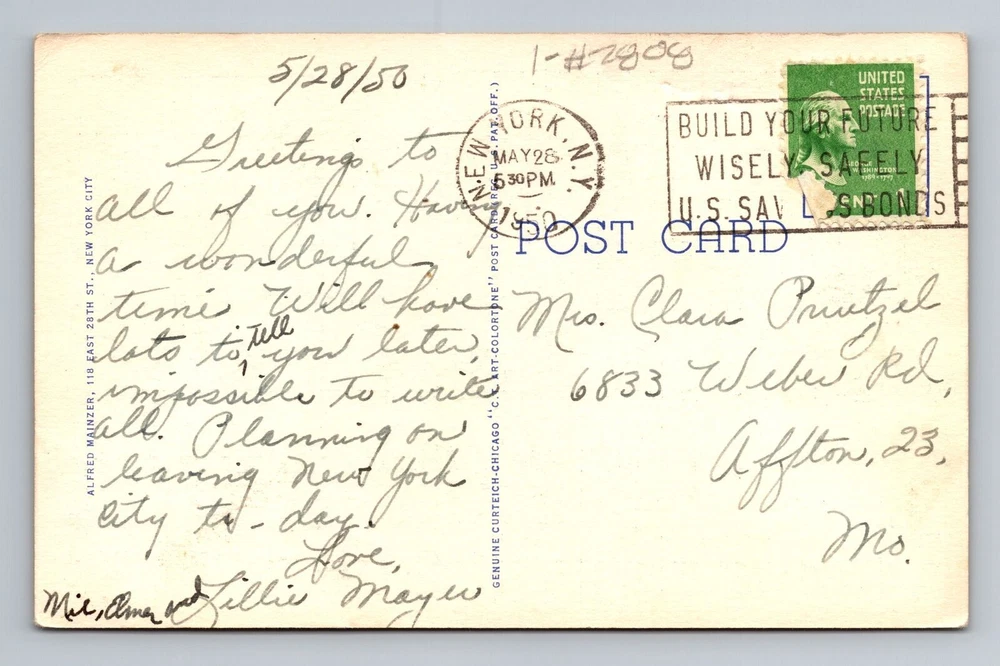 5/28/50
1-#2808
Greetings to
all of you. Having
a wonderful
time Will have
lots to tell you later,
impossible to write
all. Planning on
leaving New York
City to-day.
Love,
Mil, Elmer and Lillie Mayer
ALFRED MAINZER, 118 EAST 28TH ST., NEW YORK CITY
GENUINE CURTEICH-CHICAGO "C.T. ART-COLORTONE" POST CARD (REG. U.S. PAT. OFF.)
NEW YORK, N.Y.
MAY 28
5 30 PM
1950
BUILD YOUR FUTURE
WISELY SAFELY
U.S. SAV GS BONDS
UNITED
STATES
POSTAGE
GEORGE
WASHINGTON
1789-1797
POST CARD
Mrs. Clara Pruetzel
6833 Weber Rd,
Affton, 23,
Mo.